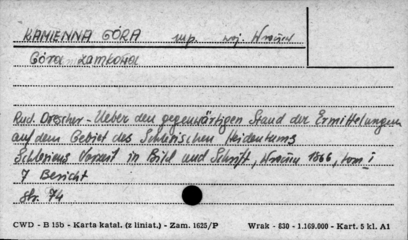 KAMIENNA GÓRA msp. woj. Wrocław
Góra zamkowa
Rud. Drescher - Ueber den gegenwärtigen Stand der Ermittelungen
auf dem Gebiet des Schlesischen Heidentums
Schlesiens Vorzeit in Bild und Schrift, Wrocław 1866, tom I
7 Bericht
str. 74
CWD - B 15b - Karta katal. (z liniat.) - Zam. 1625/P Wrak - 830 - 1.169.000 - Kart. 5 kl. A1